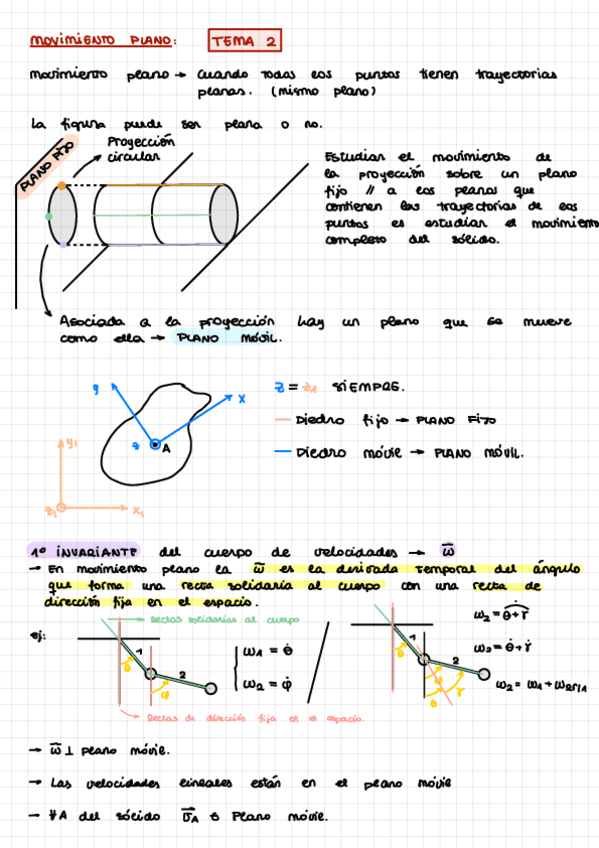 MOVIMIENTO PLANO: TEMA 2
Movimiento plano → Cuando todos los puntos tienen trayectorias
planas. (mismo plano)
La figura puede ser plana o no.
PLANO FIJO
Proyección
circular
Estudiar el movimiento de
la proyección sobre un plano
fijo // a los planos que
contienen las trayectorias de los
puntos es estudiar el movimiento
completo del sólido.
Asociada a la proyección hay un plano que se mueve
como ella → PLANO MÓVIL.
y
x
z
A
y₁
z₁
x₁
z = z₁ SIEMPRE.
— Diedro fijo → PLANO FIJO
— Diedro móvil → PLANO MÓVIL.
1º INVARIANTE del cuerpo de velocidades → ω̅
→ En movimiento plano la ω̅ es la derivada temporal del ángulo
que forma una recta solidaria al cuerpo con una recta de
dirección fija en el espacio.
ej:
Rectas solidarias al cuerpo
1
2
θ
φ
ω₁ = θ̇
ω₂ = φ̇
Rectas de dirección fija en el espacio.
1
2
θ
φ
θ
γ
ω₂ = θ+γ
ω₂ = θ̇ + γ̇
ω₂ = ω₁ + ω₂r/1
→ ω̅ ⊥ plano móvil.
→ Las velocidades lineales están en el plano móvil
→ ∀A del sólido v̅A ∈ Plano móvil.